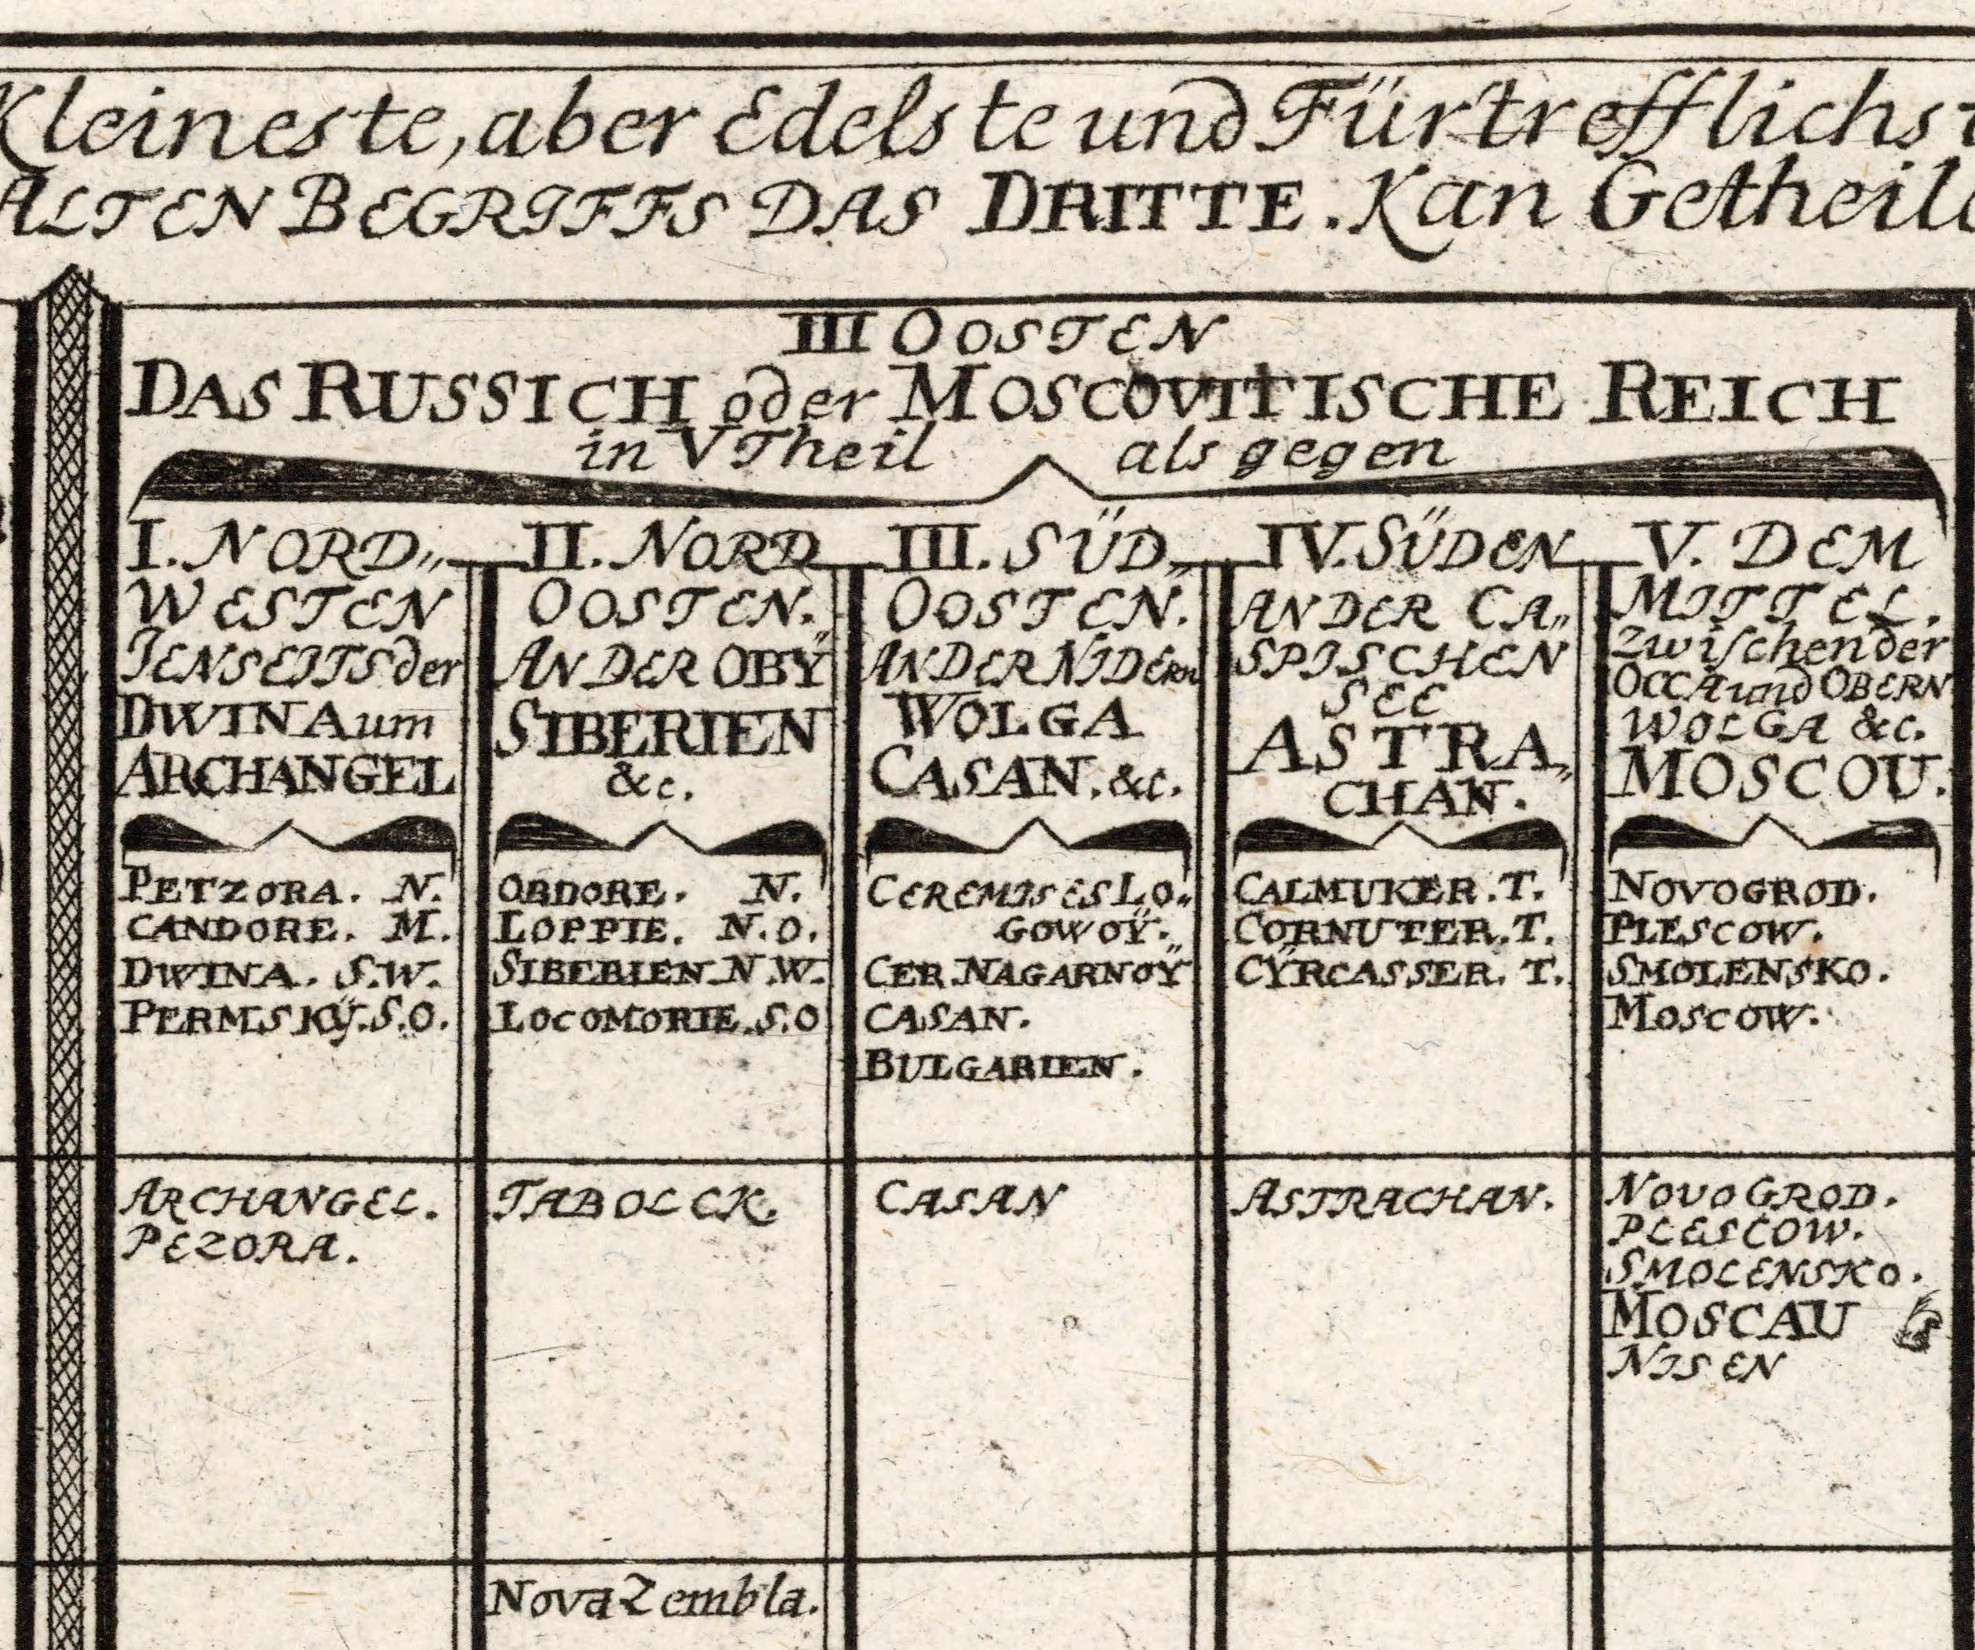 Kleineste, aber Edelste und Fürtrefflichst
ALTEN BEGRIFFS DAS DRITTE. Kan Getheile
III OOSTEN
DAS RUSSICH oder MOSCOVITISCHE REICH
in V Theil als gegen
I. NORD,,
WESTEN
JENSEITS der
DWINA um
ARCHANGEL
PETZORA. N.
CANDORE. M.
DWINA. S.W.
PERMSKÿ. S.O.
ARCHANGEL.
PEZORA.
II. NORD
OOSTEN.
AN DER OBŸ
SIBERIEN
&c.
OBDORE. N.
LOPPIE. N.O.
SIBERIEN N.W.
LOCOMORIE. S.O
TABOLCK.
Nova Zembla.
III. SÜD,,
OOSTEN.
AN DER NIDERN
WOLGA
CASAN. &c.
CEREMISES LO,,
GOWOŸ.
CER. NAGARNOŸ
CASAN.
BULGARIEN.
CASAN
IV. SÜDEN
AN DER CA,,
SPISCHEN
SEE
ASTRA,,
CHAN.
CALMUKER. T.
CORNUTER. T.
CŸRCASSER. T.
ASTRACHAN.
V. DEM
MITTEL.
zwischen der
OCCA und OBERN
WOLGA &c.
MOSCOU.
NOVOGROD.
PLESCOW.
SMOLENSKO.
MOSCOW.
NOVOGROD.
PLESCOW.
SMOLENSKO.
MOSCAU
NISEN